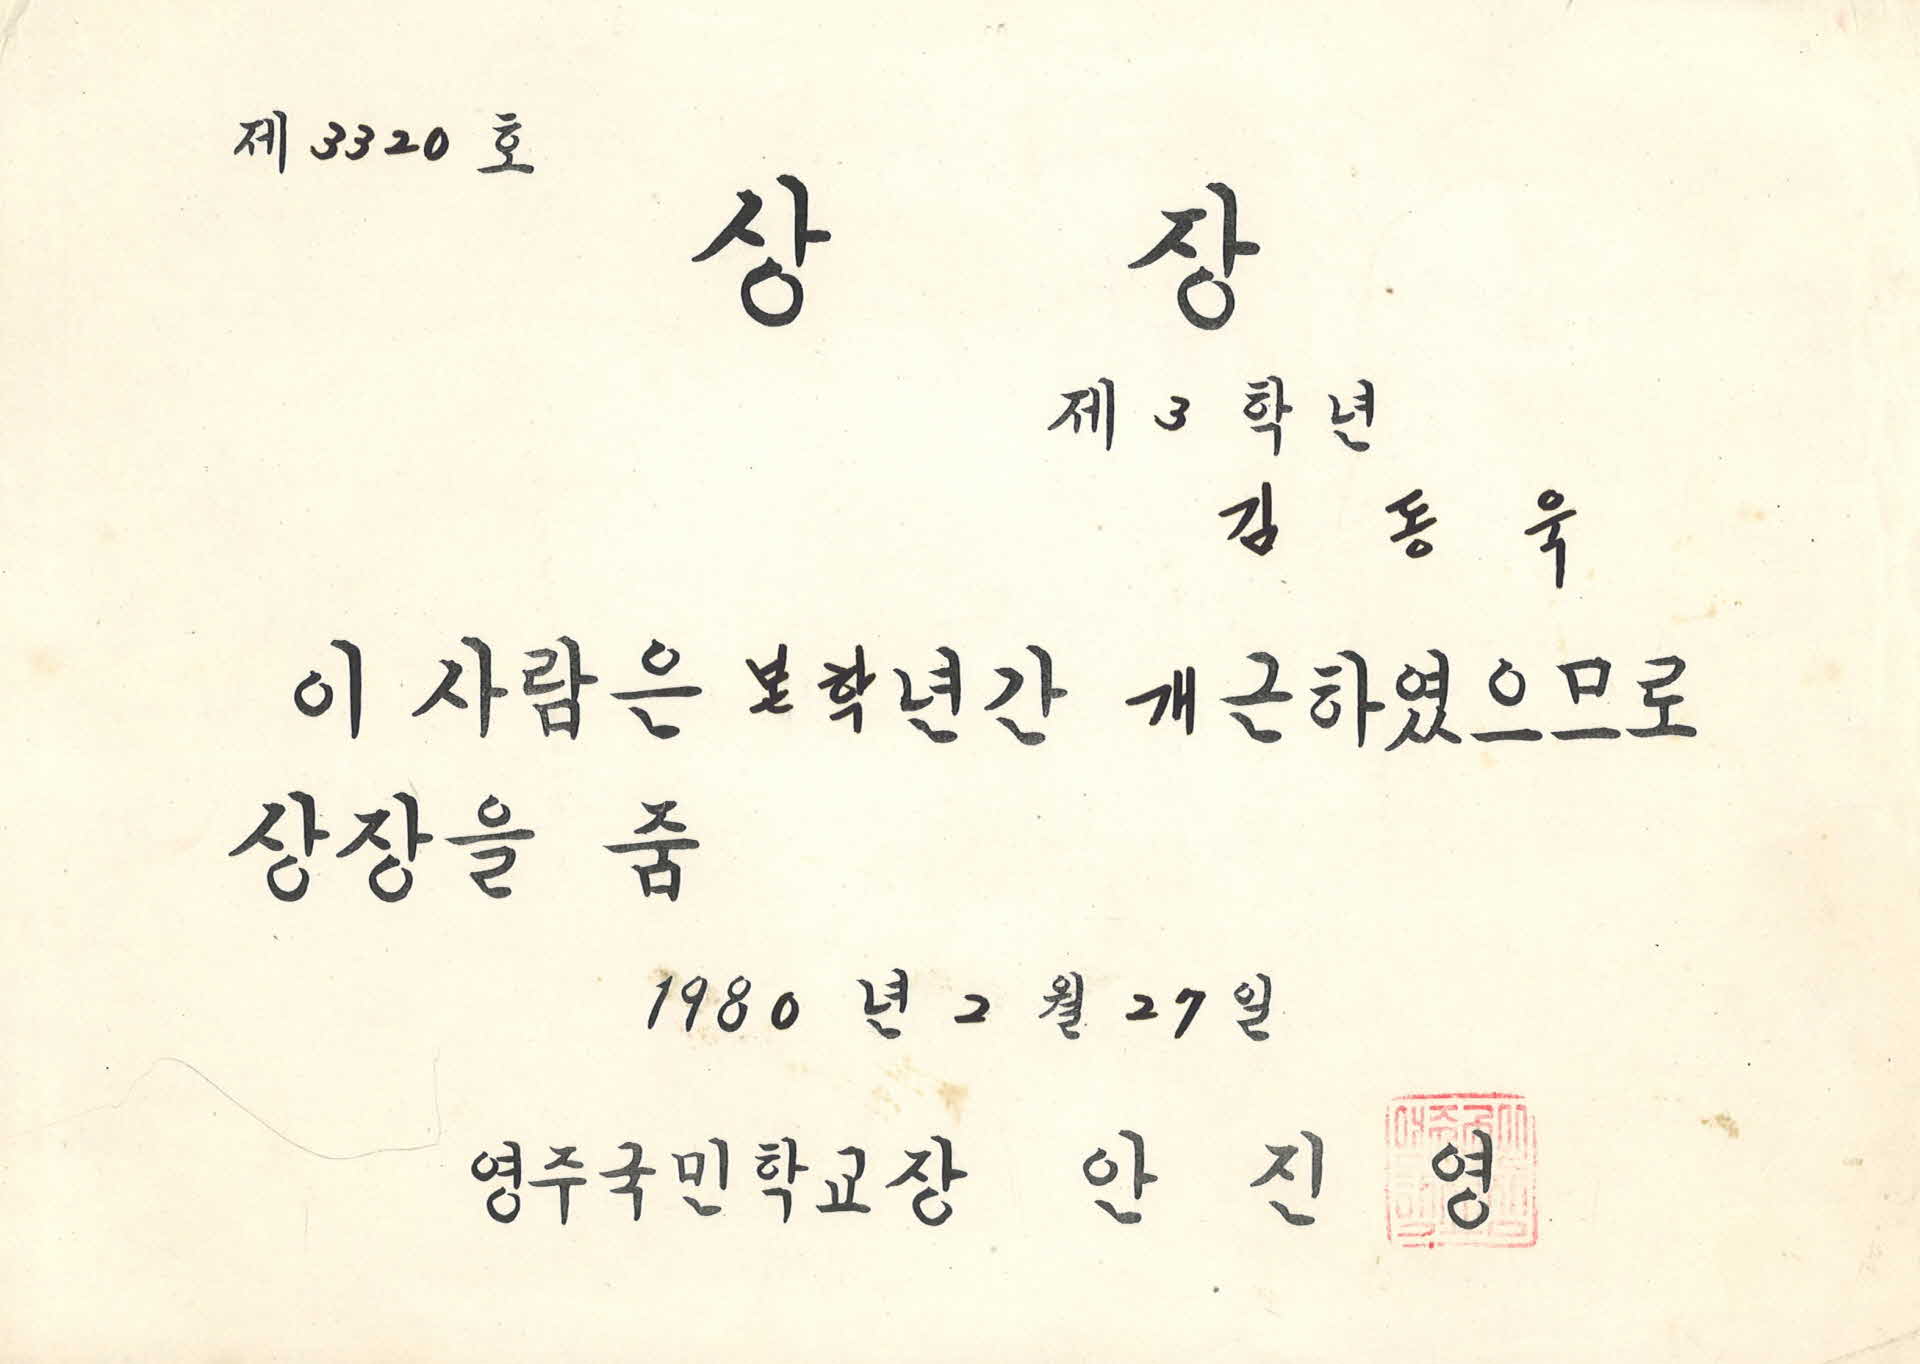 제 3320 호
상 장
제 3 학 년
김 동 욱
이 사람은 본학년간 개근하였으므로
상장을 줌
1980 년 2 월 27 일
영주국민학교장 안 진 영